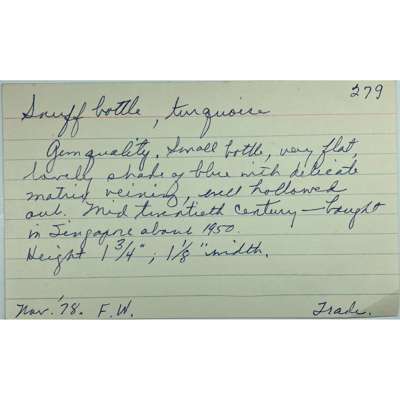 279
Snuff bottle, turquoise
Gem quality. Small bottle, very flat,
lovely shade of blue with delicate
matrix veining, well hollowed
out. Mid twentieth century — bought
in Singapore about 1950.
Height 1 3/4", 1 1/8" width.
Nov. '78. F.W. Trade.